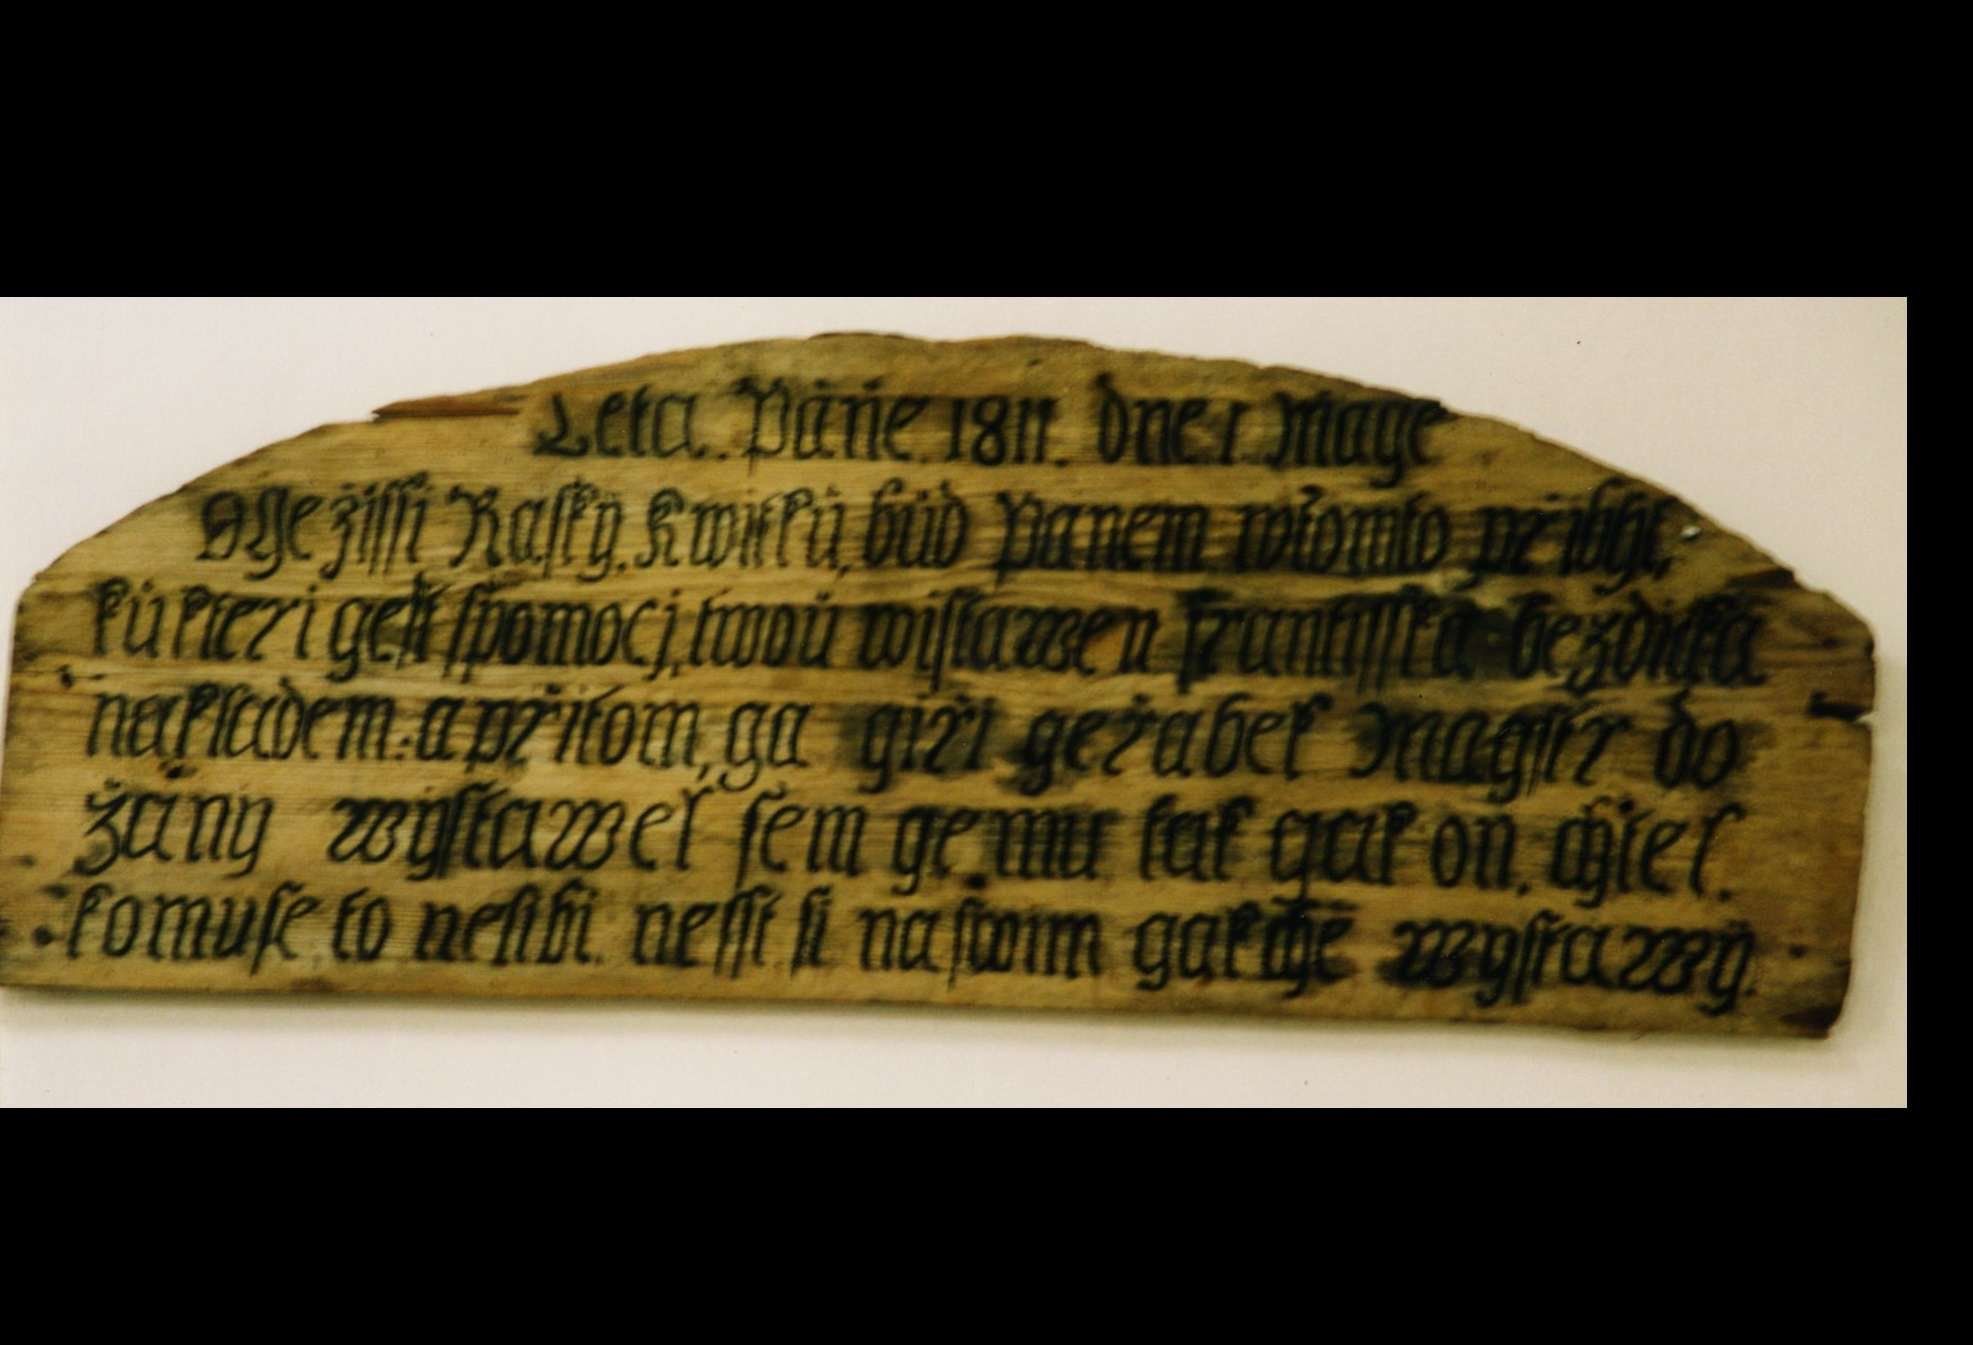 Leta. Páně. 1811. dne 1. Mage
O Gežissi Rasky. Kwitkü, büd Panem wtomto přibit,
kü kteri gest spomocj, twoü wistawen Frantisska bezdicka
nakladem: a přitom, ga giři geřabek Magstr do
žäny wystawel sem ge mu tak gak on, chtel.
komuse, to nelibi. nesst. si naswim gakche wystawy.